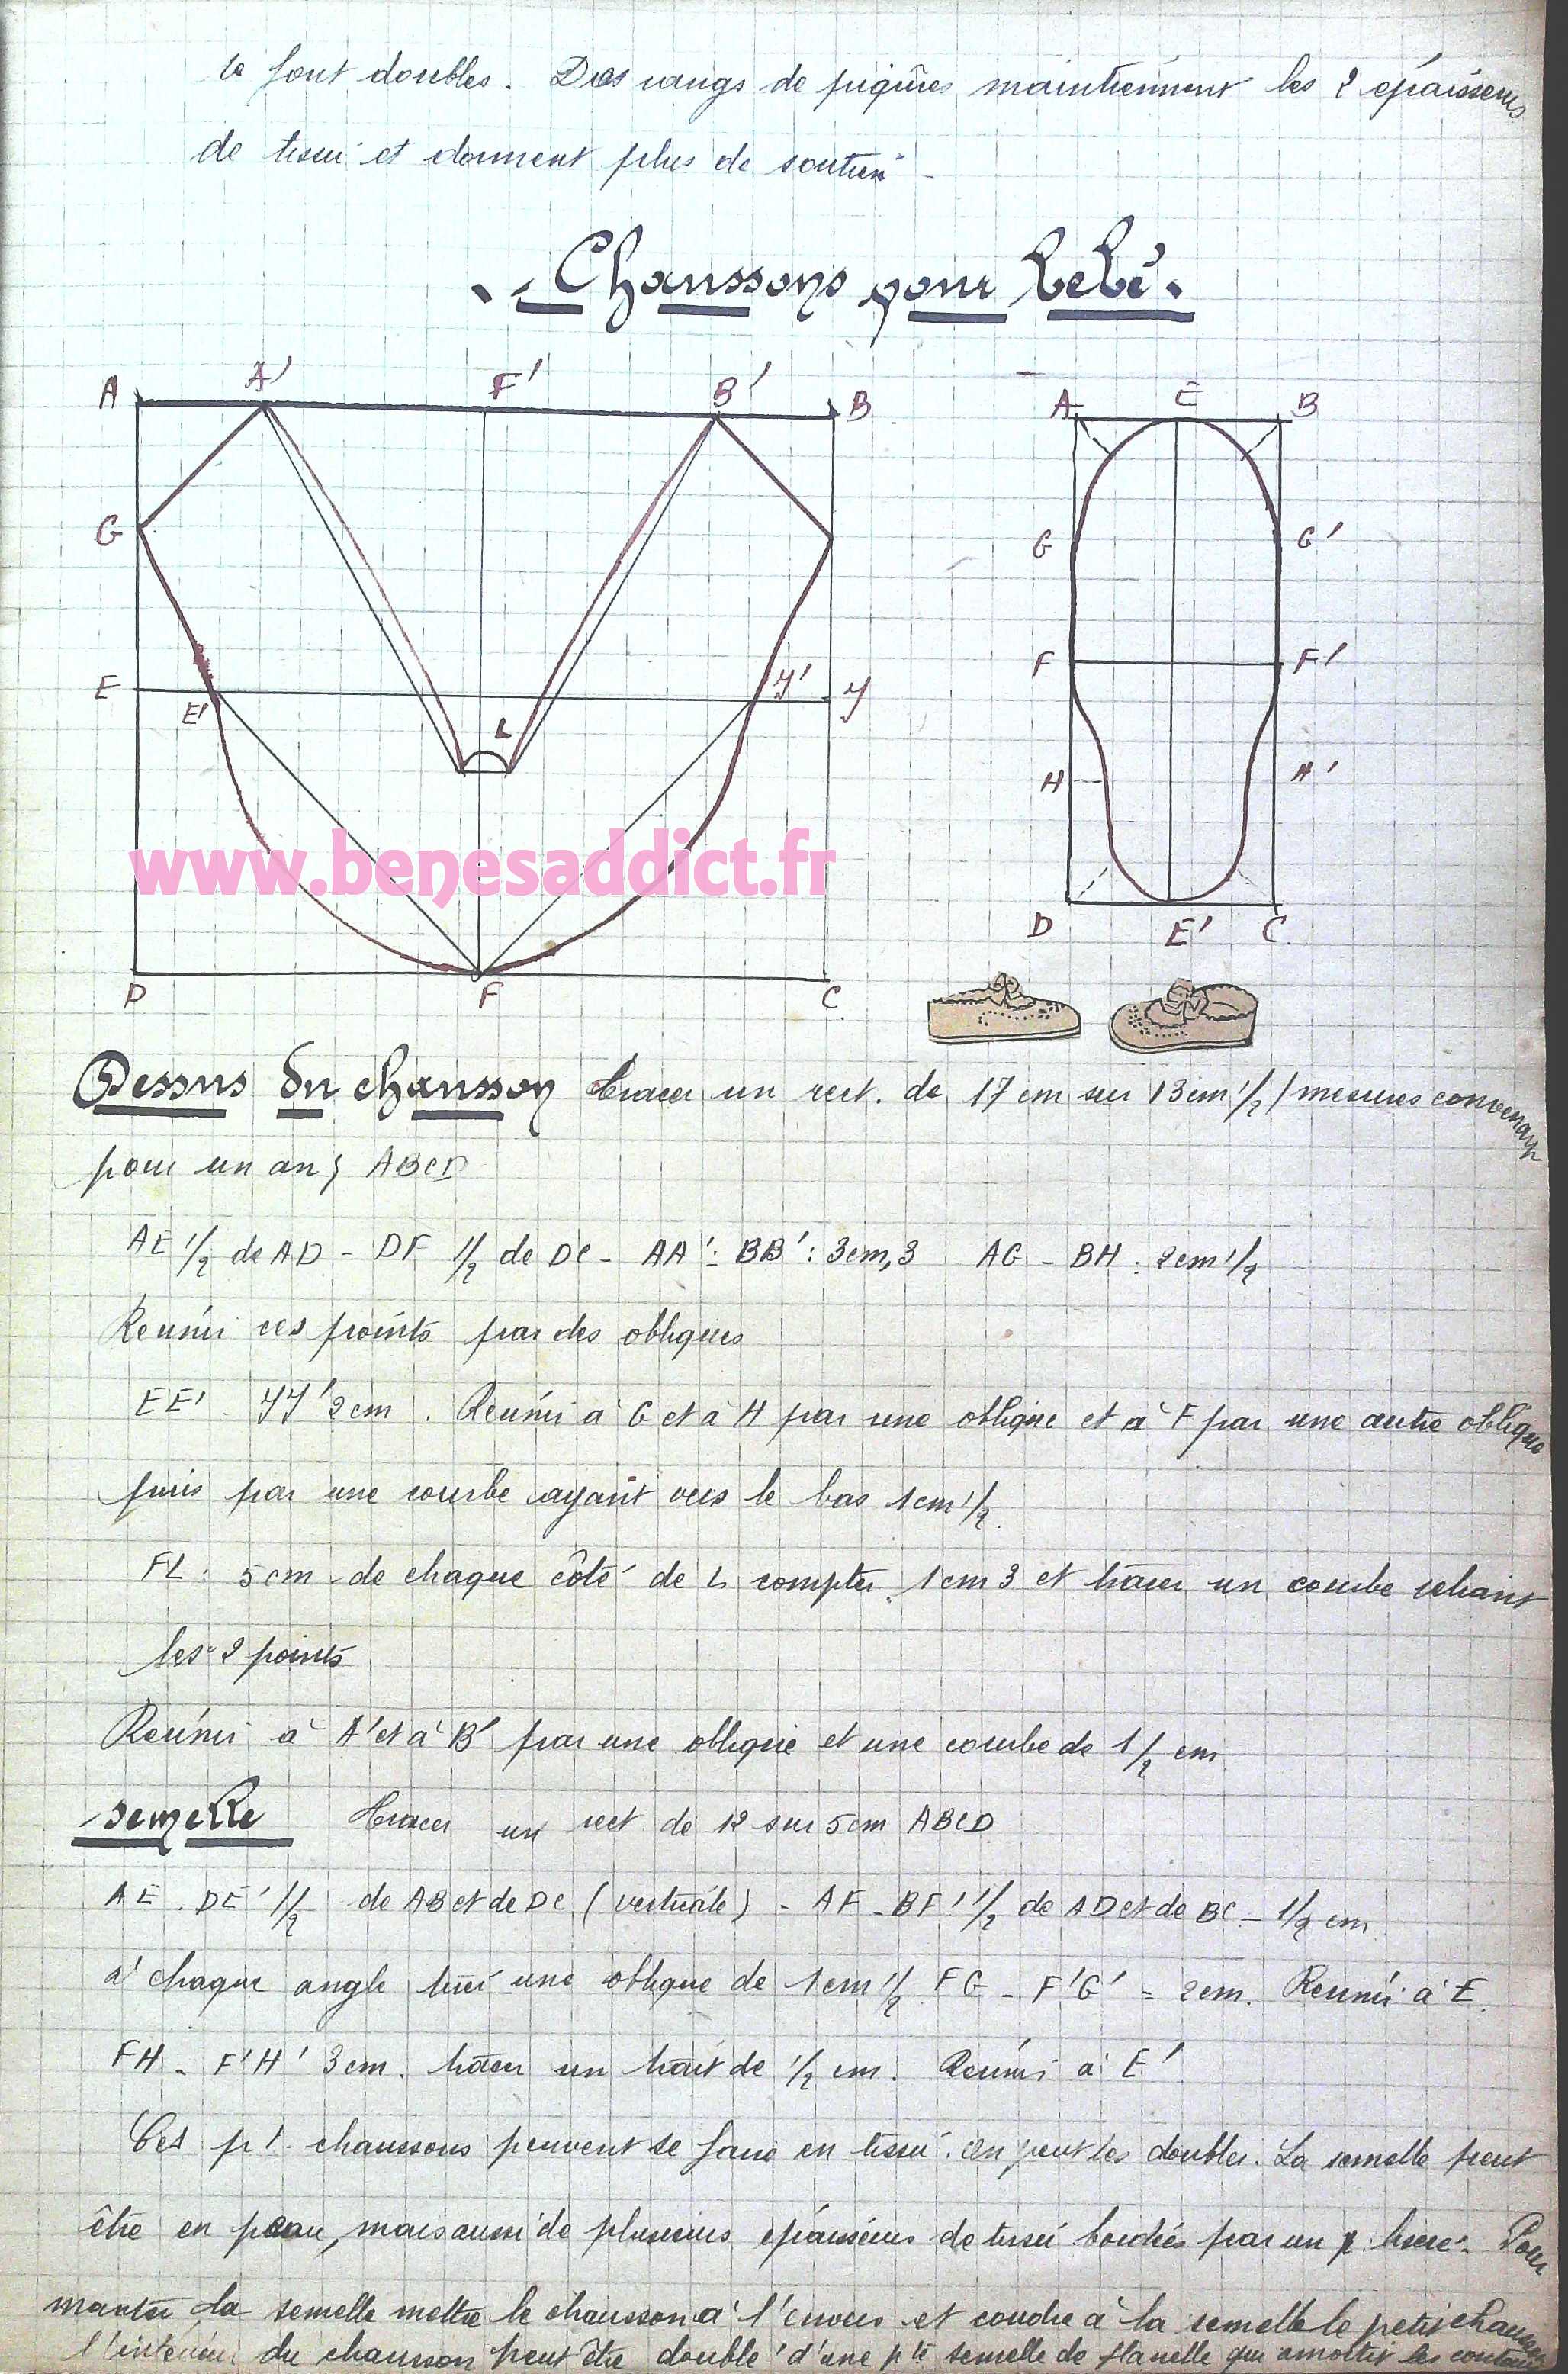 se font doubles. Des rangs de piqûres maintiennent les 2 épaisseurs
de tissu et donnent plus de soutien -
Chaussons pour bébé.
A A' F' B' B
G
E E' L Y' Y
D F C
A E B
G G'
F F'
H H'
D E' C
www.benesaddict.fr
Dessus du chausson Tracer un rect. de 17 cm sur 13 cm 1/2 / mesures convenant
pour un an) ABCD
AE 1/2 de AD - DF 1/2 de DC - AA' : BB' : 3cm,3 AG - BH : 2cm 1/2
Réunir ces points par des obliques
EE' - YY' 2cm. Réunir à G et à H par une oblique et à F par une autre oblique
puis par une courbe ayant vers le bas 1cm 1/2.
FL : 5cm - de chaque côté de L compter 1cm 3 et tracer un courbe reliant
les 2 points
Réunir à A' et à B' par une oblique et une courbe de 1/2 cm
Semelle Tracer un rect. de 12 sur 5cm ABCD
AE . DE' 1/2 de AB et de DC (verticale) - AF - BF' 1/2 de AD et de BC - 1/2 cm
à chaque angle tirer une oblique de 1cm 1/2. FG - F'G' = 2cm. Réunir à E.
FH - F'H' 3cm. tracer un trait de 1/2 cm. Réunir à E'
Ces pt. chaussons peuvent se faire en tissu. On peut les doubler. La semelle peut
être en peau, mais aussi de plusieurs épaisseurs de tissu bordés par un liseré. Pour
monter la semelle mettre le chausson à l'envers et coudre à la semelle le petit chausson
l'intérieur du chausson peut être doublé d'une pte semelle de flanelle qui amortit les coutures